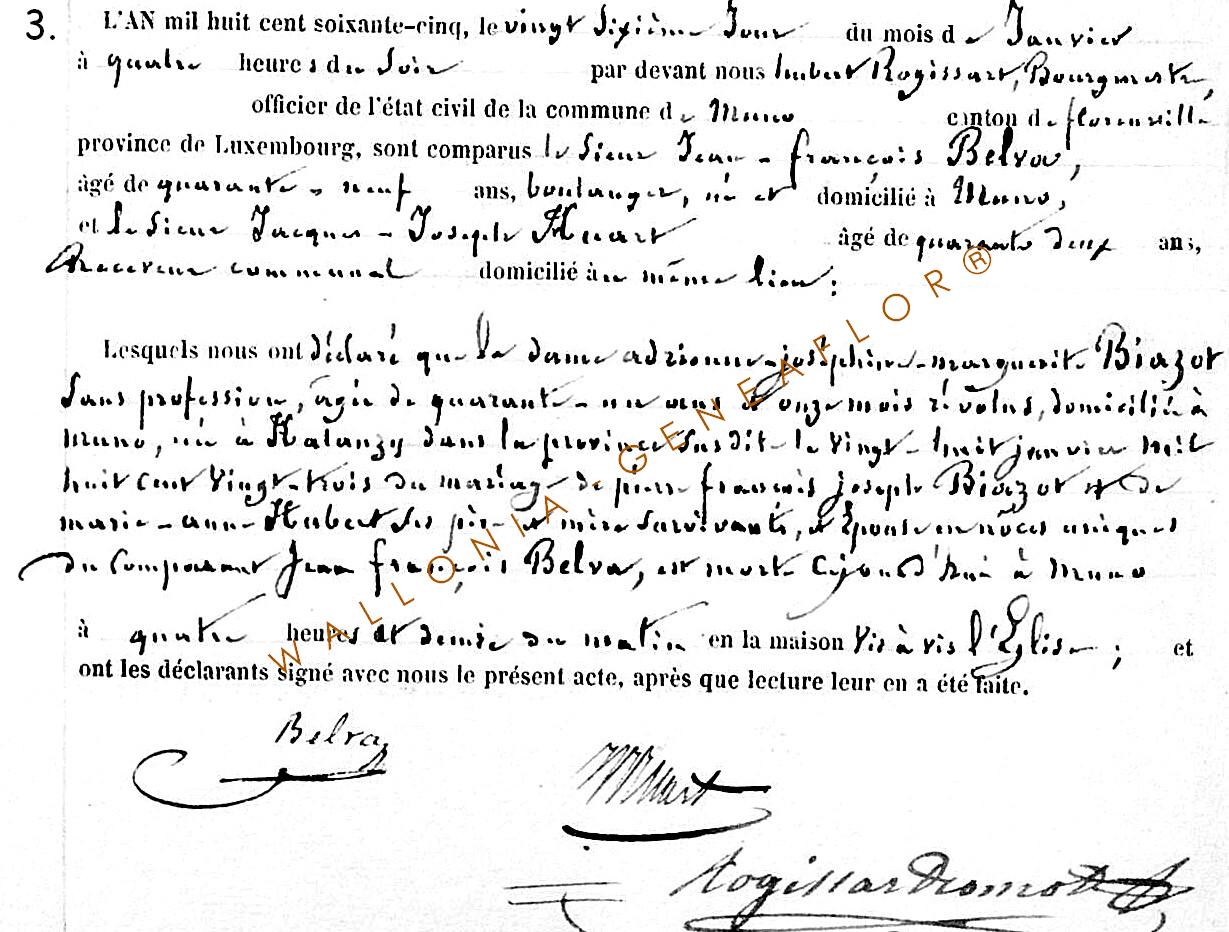 3. L'AN mil huit cent soixante-cinq, le vingt Sixième Jour du mois de Janvier
à quatre heures du Soir par devant nous Imbert Rogissart, Bourgmestre,
officier de l'état civil de la commune de Muno canton de florenville
province de Luxembourg, sont comparus le Sieur Jean-françois Belva,
âgé de quarante-neuf ans, boulanger, né et domicilié à Muno,
et le Sieur Jacques-Joseph Huart âgé de quarante deux ans,
Receveur communal domicilié au même lieu:
Lesquels nous ont déclaré que la dame adrienne-joséphine-marguerite Biazot
Sans profession, âgée de quarante-un ans et onze mois révolus, domiciliée à
muno, née à Halanzy dans la province Susdite le Vingt-huit janvier mil
huit cent Vingt-trois du mariage de pierre françois joseph Biazot et de
marie-anne Hubert Ses père et mère Survivants, et Epouse en nôces uniques
du Comparant Jean françois Belva, est morte Cejourd'hui à muno
à quatre heures et demie du matin en la maison Vis à vis l'Eglise; et
ont les déclarants signé avec nous le présent acte, après que lecture leur en a été faite.
Belva
Huart
Rogissart
WALLONIA-GENEAFLOR®